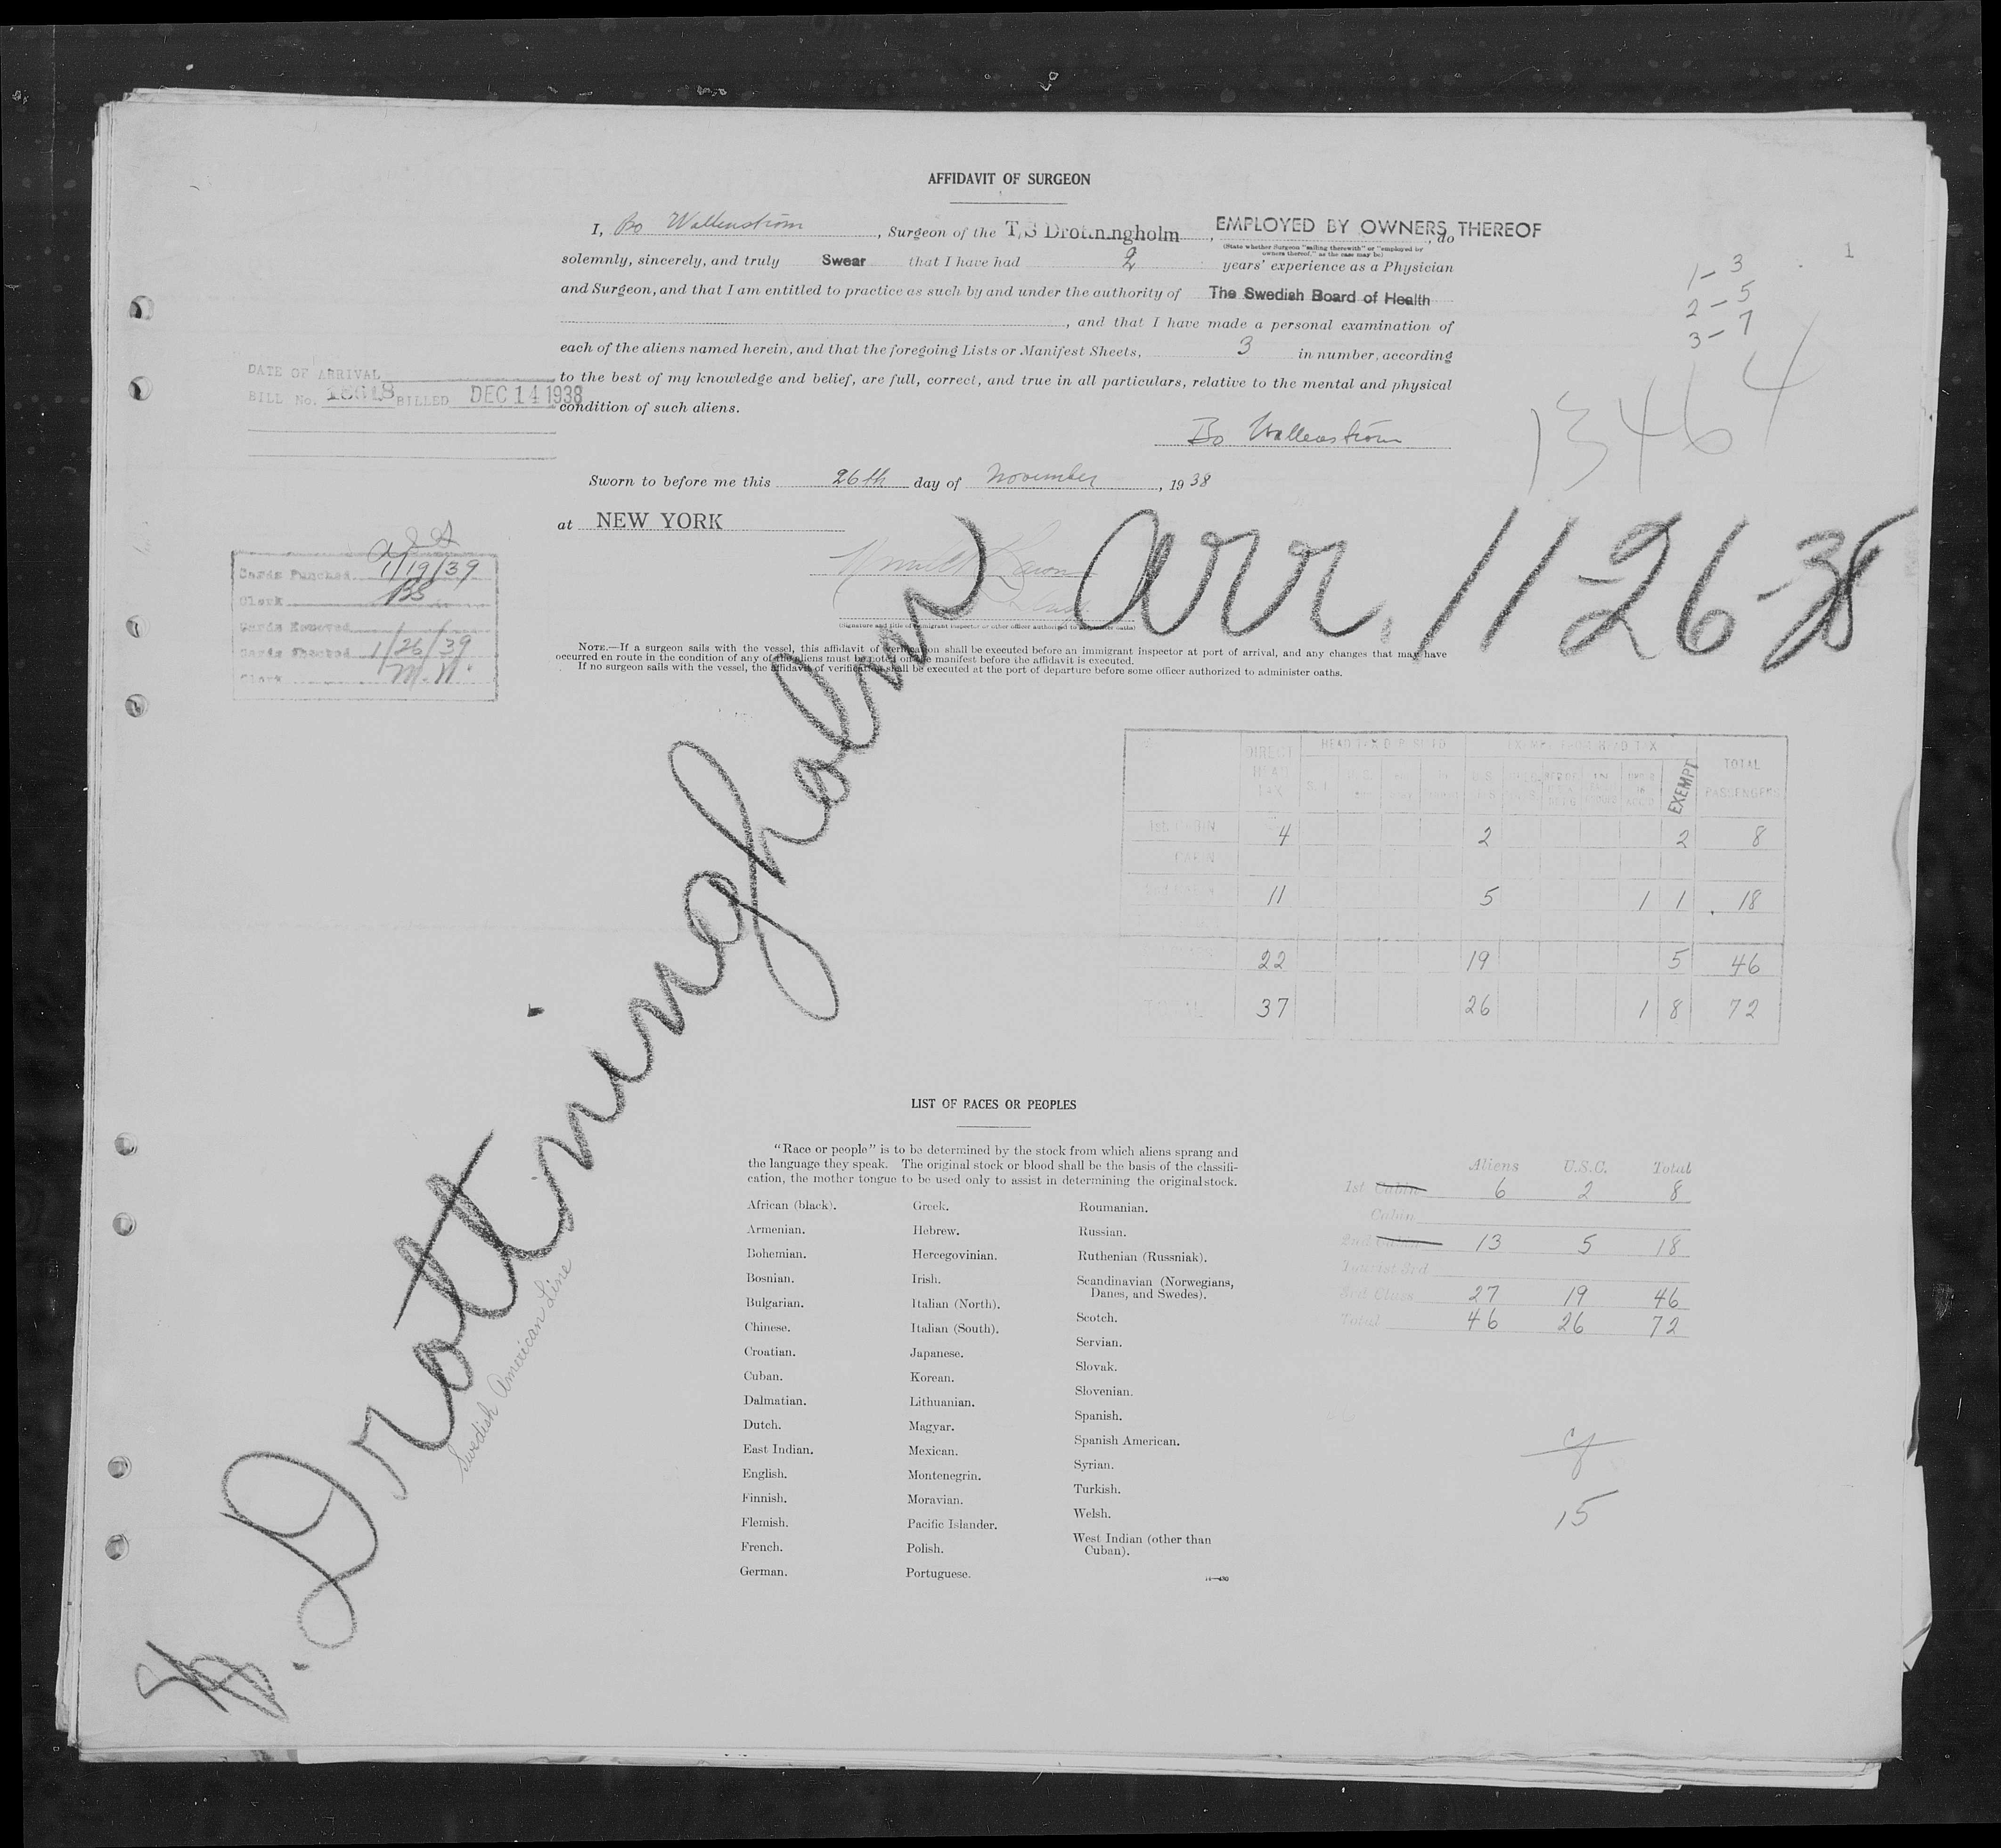 AFFIDAVIT OF SURGEON
I, Bo Wallenström, Surgeon of the T/S Drottningholm, EMPLOYED BY OWNERS THEREOF, do
(State whether Surgeon "sailing therewith" or "employed by
owners thereof," as the case may be)
solemnly, sincerely, and truly Swear that I have had 2 years' experience as a Physician
and Surgeon, and that I am entitled to practice as such by and under the authority of The Swedish Board of Health
, and that I have made a personal examination of
each of the aliens named herein, and that the foregoing Lists or Manifest Sheets, 3 in number, according
to the best of my knowledge and belief, are full, correct, and true in all particulars, relative to the mental and physical
condition of such aliens.
Bo Wallenström
Sworn to before me this 26th day of November, 1938
at NEW YORK
(Signature and title of immigrant inspector or other officer authorized to administer oaths)
NOTE.—If a surgeon sails with the vessel, this affidavit of verification shall be executed before an immigrant inspector at port of arrival, and any changes that may have
occurred en route in the condition of any of the aliens must be noted on the manifest before the affidavit is executed.
If no surgeon sails with the vessel, the affidavit of verification shall be executed at the port of departure before some officer authorized to administer oaths.
1
1-3
2-5
3-7
13464
DATE OF ARRIVAL
BILL No. BILLED DEC 14 1938
Cards Punched 1/19/39
Clerk BS
Cards Removed
Cards Checked 1/26/39
Clerk M.W.
Drottningholm arr. 11-26-38
Swedish American Line
DIRECT HEAD TAX
HEAD TAX DEPOSITED
EXEMPT FROM HEAD TAX
EXEMPT
TOTAL PASSENGERS
1st CABIN 4 2 2 8
CABIN
11 5 1 1 18
22 19 5 46
TOTAL 37 26 1 8 72
LIST OF RACES OR PEOPLES
"Race or people" is to be determined by the stock from which aliens sprang and
the language they speak. The original stock or blood shall be the basis of the classifi-
cation, the mother tongue to be used only to assist in determining the original stock.
African (black).
Armenian.
Bohemian.
Bosnian.
Bulgarian.
Chinese.
Croatian.
Cuban.
Dalmatian.
Dutch.
East Indian.
English.
Finnish.
Flemish.
French.
German.
Greek.
Hebrew.
Hercegovinian.
Irish.
Italian (North).
Italian (South).
Japanese.
Korean.
Lithuanian.
Magyar.
Mexican.
Montenegrin.
Moravian.
Pacific Islander.
Polish.
Portuguese.
Roumanian.
Russian.
Ruthenian (Russniak).
Scandinavian (Norwegians,
Danes, and Swedes).
Scotch.
Servian.
Slovak.
Slovenian.
Spanish.
Spanish American.
Syrian.
Turkish.
Welsh.
West Indian (other than
Cuban).
14—430
Aliens U.S.C. Total
1st Cabin 6 2 8
Cabin
2nd Cabin 13 5 18
Tourist 3rd
3rd Class 27 19 46
Total 46 26 72
15